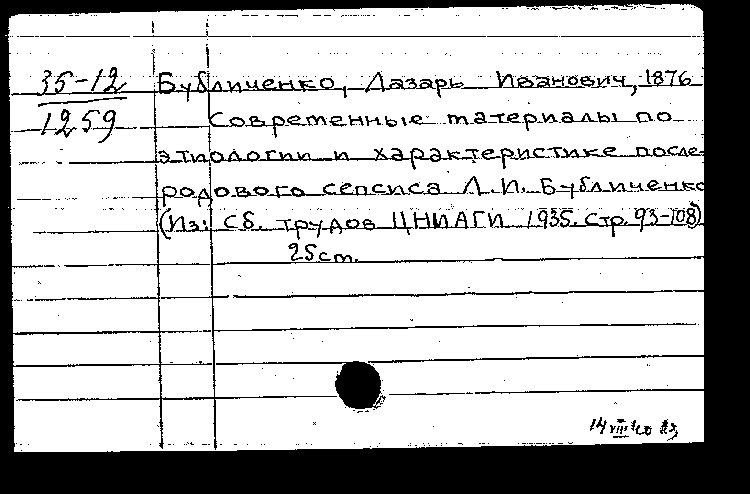 35-12
1259
Бубличенко, Лазарь Иванович, 1876
Современные материалы по
этиологии и характеристике после-
родового сепсиса Л.И. Бубличенко
(Из: Сб. трудов ЦНИАГИ 1935. стр. 93-108)
25 ст.
14 VIII